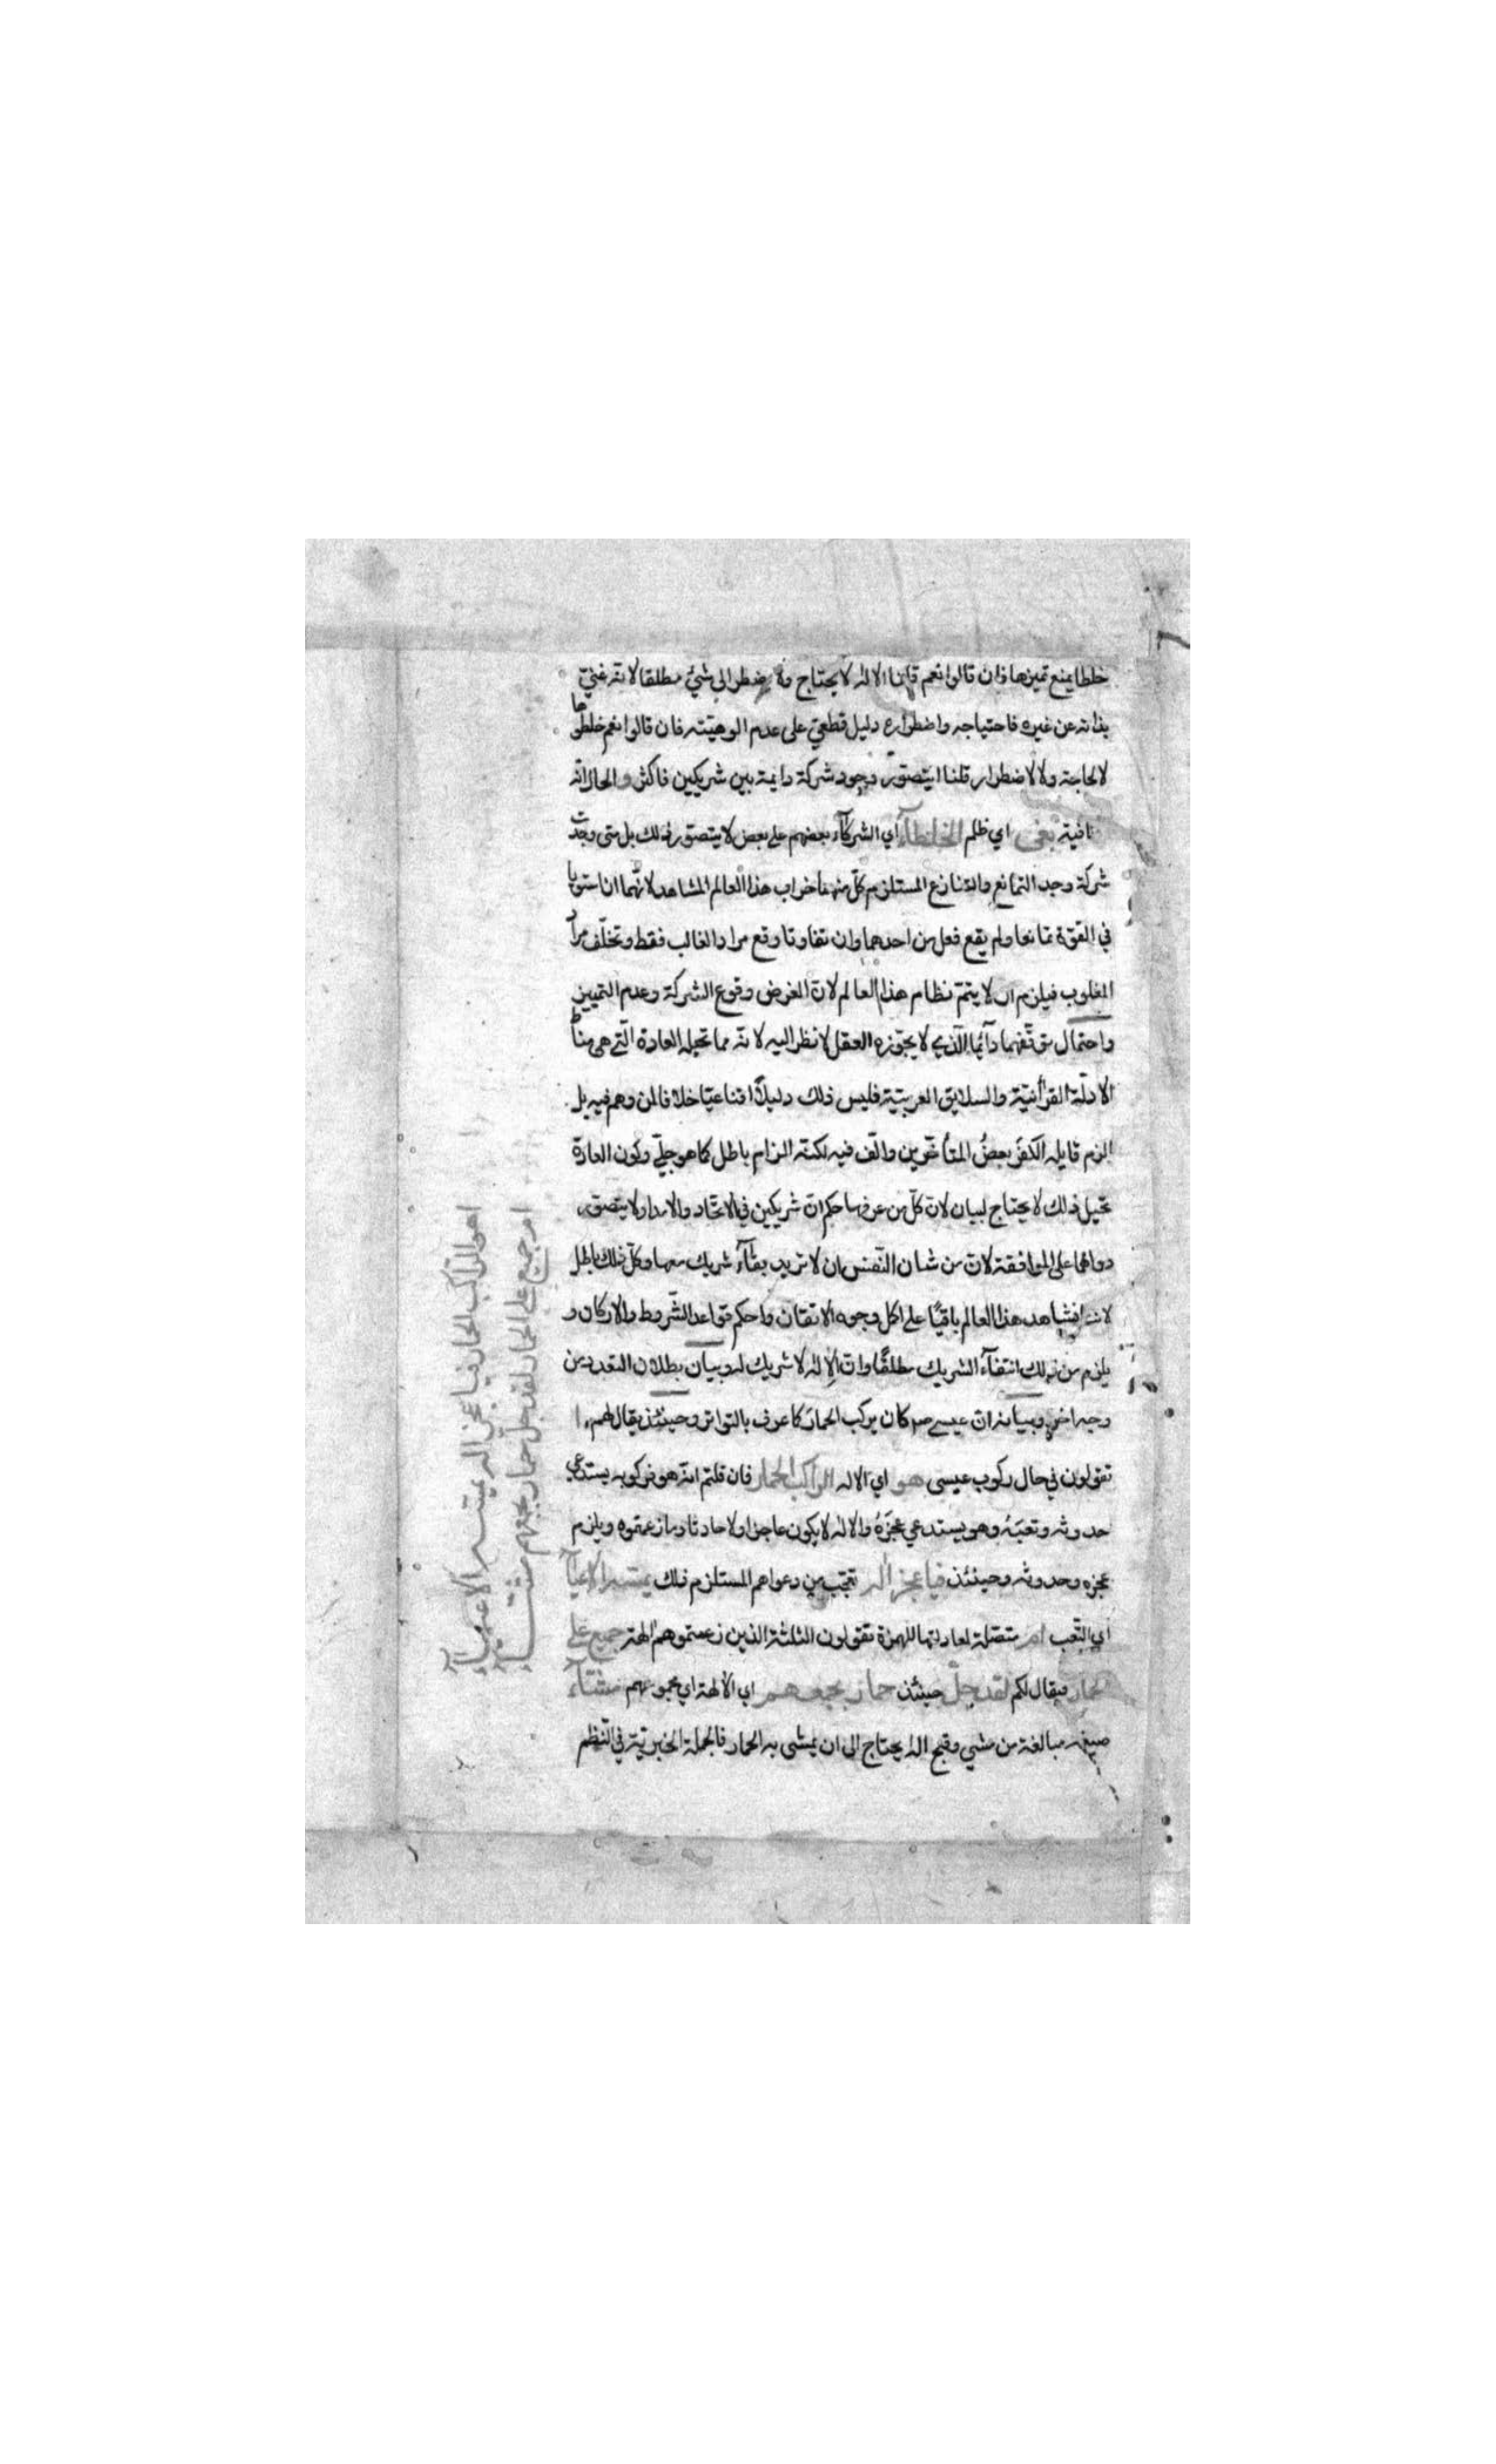 خلطا يمنع تميزها فان قالوا نعم قلنا الاله لا يحتاج ولا يضطر الى شئ مطلقا لانه غنيّ
بذاته عن غيره فاحتياجه واضطراره دليل قطعيّ على عدم الوهيّته فان قالوا نعم خلطوها
لا لحاجة ولا لاضطرار قلنا ايتصوّر وجود شركة دايمة بين شريكين فاكثر والحال انّه
نافية بغى اي ظلم الخلطآء اي الشركآء بعضهم على بعض لا يتصوّر ذلك بل متى وجدت
شركة وجد التمانع والتنازع المستلزم كلّ منهما خراب هذا العالم المشاهد لانّهما ان استويا
في القوّة تمانعا ولم يقع فعل من احدهما وان تفاوتا وقع مراد الغالب فقط وتخلّف مراد
المغلوب فيلزم ان لا يتمّ نظام هذا العالم لانّ الغرض وقوع الشركة وعدم التمييز
واحتمال توقّفهما دآئما الّذي لا يجوّزه العقل لا نظر اليه لانّه مما تحيله العادة الّتي هي مناط
الادلّة القرأنيّة والسلايق العربيّة فليس ذلك دليلًا اقناعيّا خلافا لمن وهم فيه بل
الزم قايله الكفرَ بعضُ المتأخّرين والّف فيه لكنّه الزام باطل كما هو جليّ وكون العادة
تحيل ذلك لا يحتاج لبيان لانّ كلّ من عرفها حكم انّ شريكين في الاتّحاد والامداد لا يتصوّر
دوامهما على الموافقة لانّ من شان النّفس ان لا تريد بقآء شريك معها وكلّ ذلك باطل
لاننا نشاهد هذا العالم باقيًا على اكل وجوه الاتقان واحكم قواعد الشّروط والاركان و
يلزم من ذلك انتفآء الشريك مطلقًا وانّ الاله لا شريك له وبيان بطلان التعدد من
وجه اخر وبيانه انّ عيسى صم كان يركب الحمار كما عرف بالتواتر وحينئذ يقال لهم ا
تقولون في حال ركوب عيسى هو اي الاله الراكب الحمار فان قلتم انّه هو فركوبه يستدعي
حدوثه وتعبَهُ وهو يستدعي عجزَهُ والاله لا يكون عاجزا ولا حادثا وما زعمتوه ويلزم
عجزه وحدوثه وحينئذ فيا عجز اله تعجّب من دعواهم المستلزم ذلك يمسّه الاعيآ
اي التّعب ام متصلة لمعادلتها للهمزة تقولون الثلثة الذين زعمتموهم الهة جميع على
الحمار فيقال لكم لقد جلّ حينئذ حمار بجمعهم اي الالهة اي مجموعهم مشّآء
صيغة مبالغة من مشي وقبح اله يحتاج الى ان يمشى به الحمار فالجملة الخبريّة في النّظم
اهو الراكب الحمار فيا عجز اله يمسّه الاعيآ
ام جميع على الحمار لقد جلّ حمار بجمعهم مشّآ